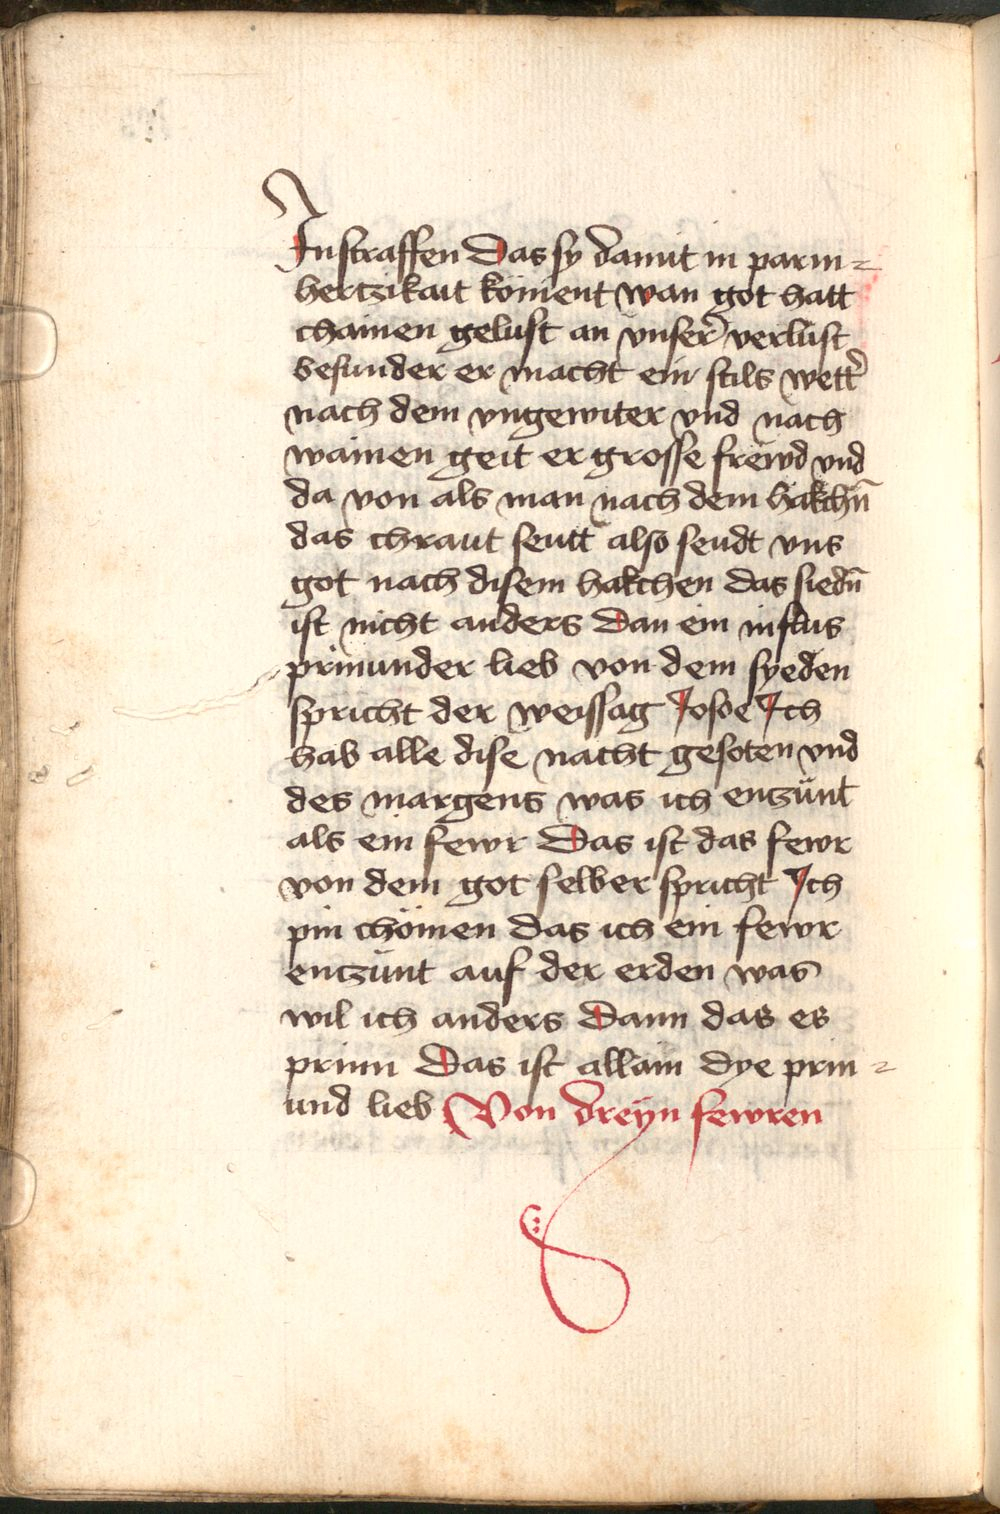 Instraffen Das sy damit in parm⸗
hertzikait köment wan got hatt
chainen gelust an vnser verlust
besunder er macht ein stils wett̉
nach dem vngewiter vnd nach
wainen geit er grosse frewd vnd
da von als man nach dem hakchn̄
das chraut seutt also seudt vns
got nach disem hakchen das siedn̄
ist nicht anders Dan ein influs
prinunder lieb von dem syeden
spricht der weissag Josoe Ich
hab alle dise nacht gesoten vnd
des margens was ich entzünt
als ein fewr Das ist das fewr
von dem got selber spricht Ich
pin chömen das ich ein fewr
entzünt auf der erden was
wil ich anders Dann das es
prinn Das ist allain dye prin⸗
und lieb Von dreyn fewren